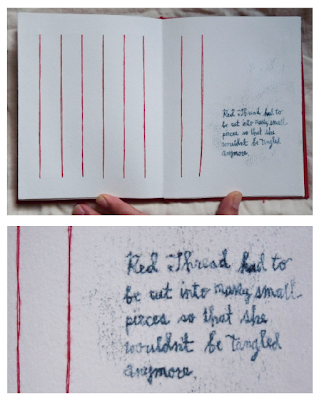 Red Thread had to
be cut into many small
pieces so that she
wouldn't be tangled
anymore.
Red Thread had to
be cut into many small
pieces so that she
wouldn't be tangled
anymore.